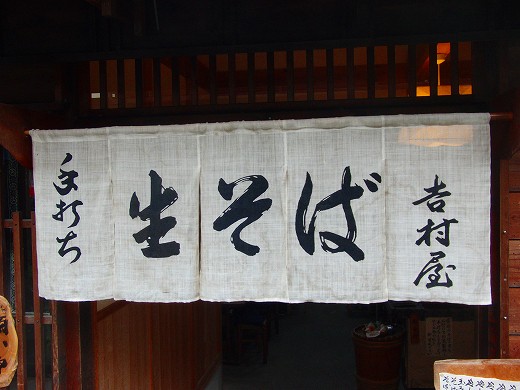 手打ち
生そば
吉村屋